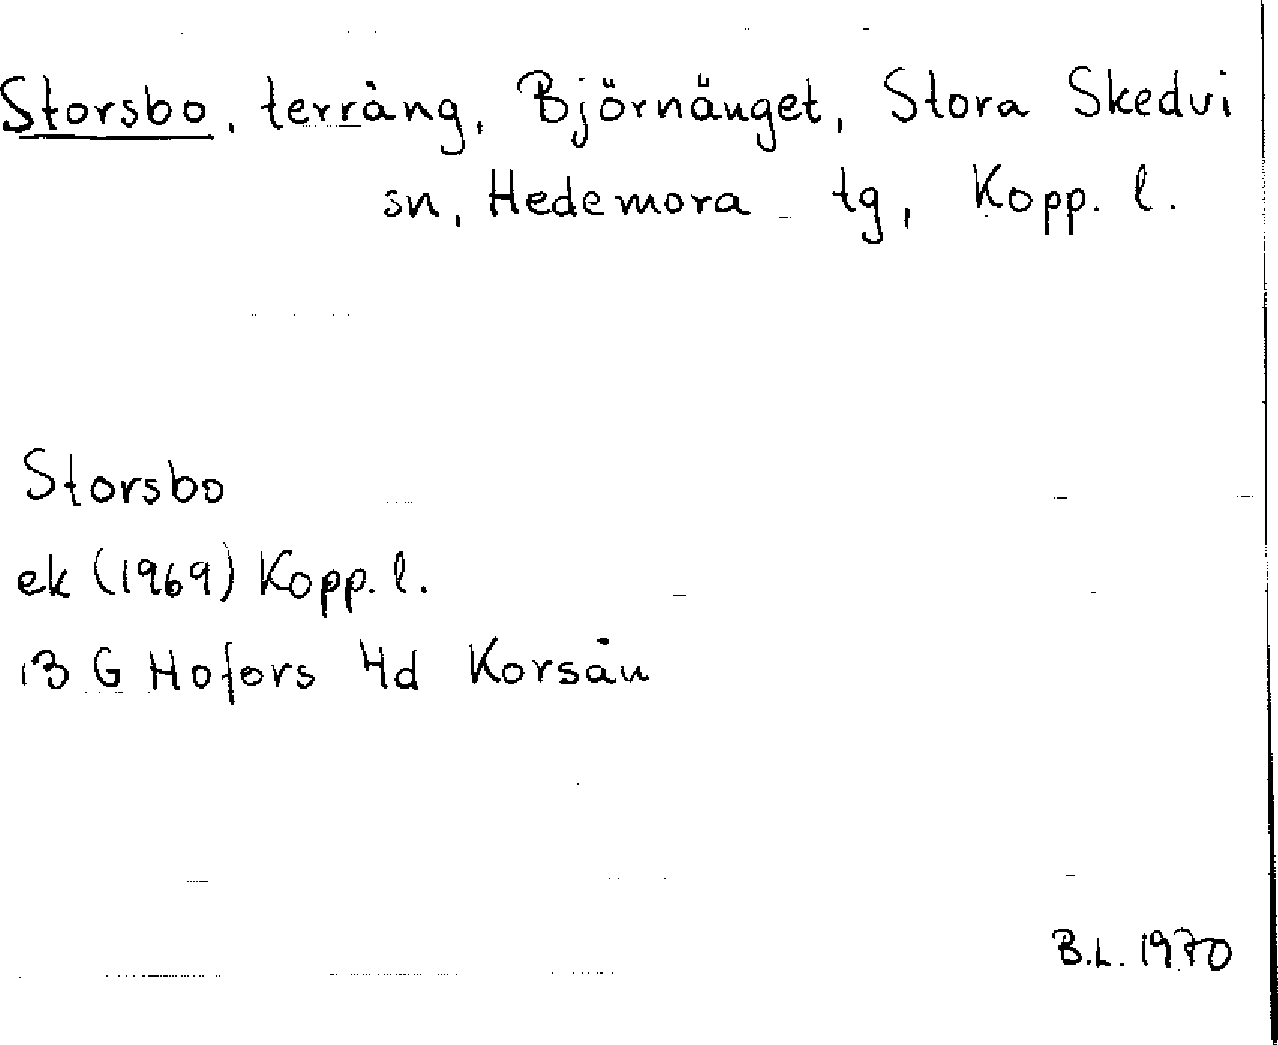 Storsbo, terräng, Björnänget, Stora Skedvi
sn, Hedemora tg, Kopp. l.
Storsbo
ek (1969) Kopp. l.
13 G Hofors 4d Korsån
B.L. 1970